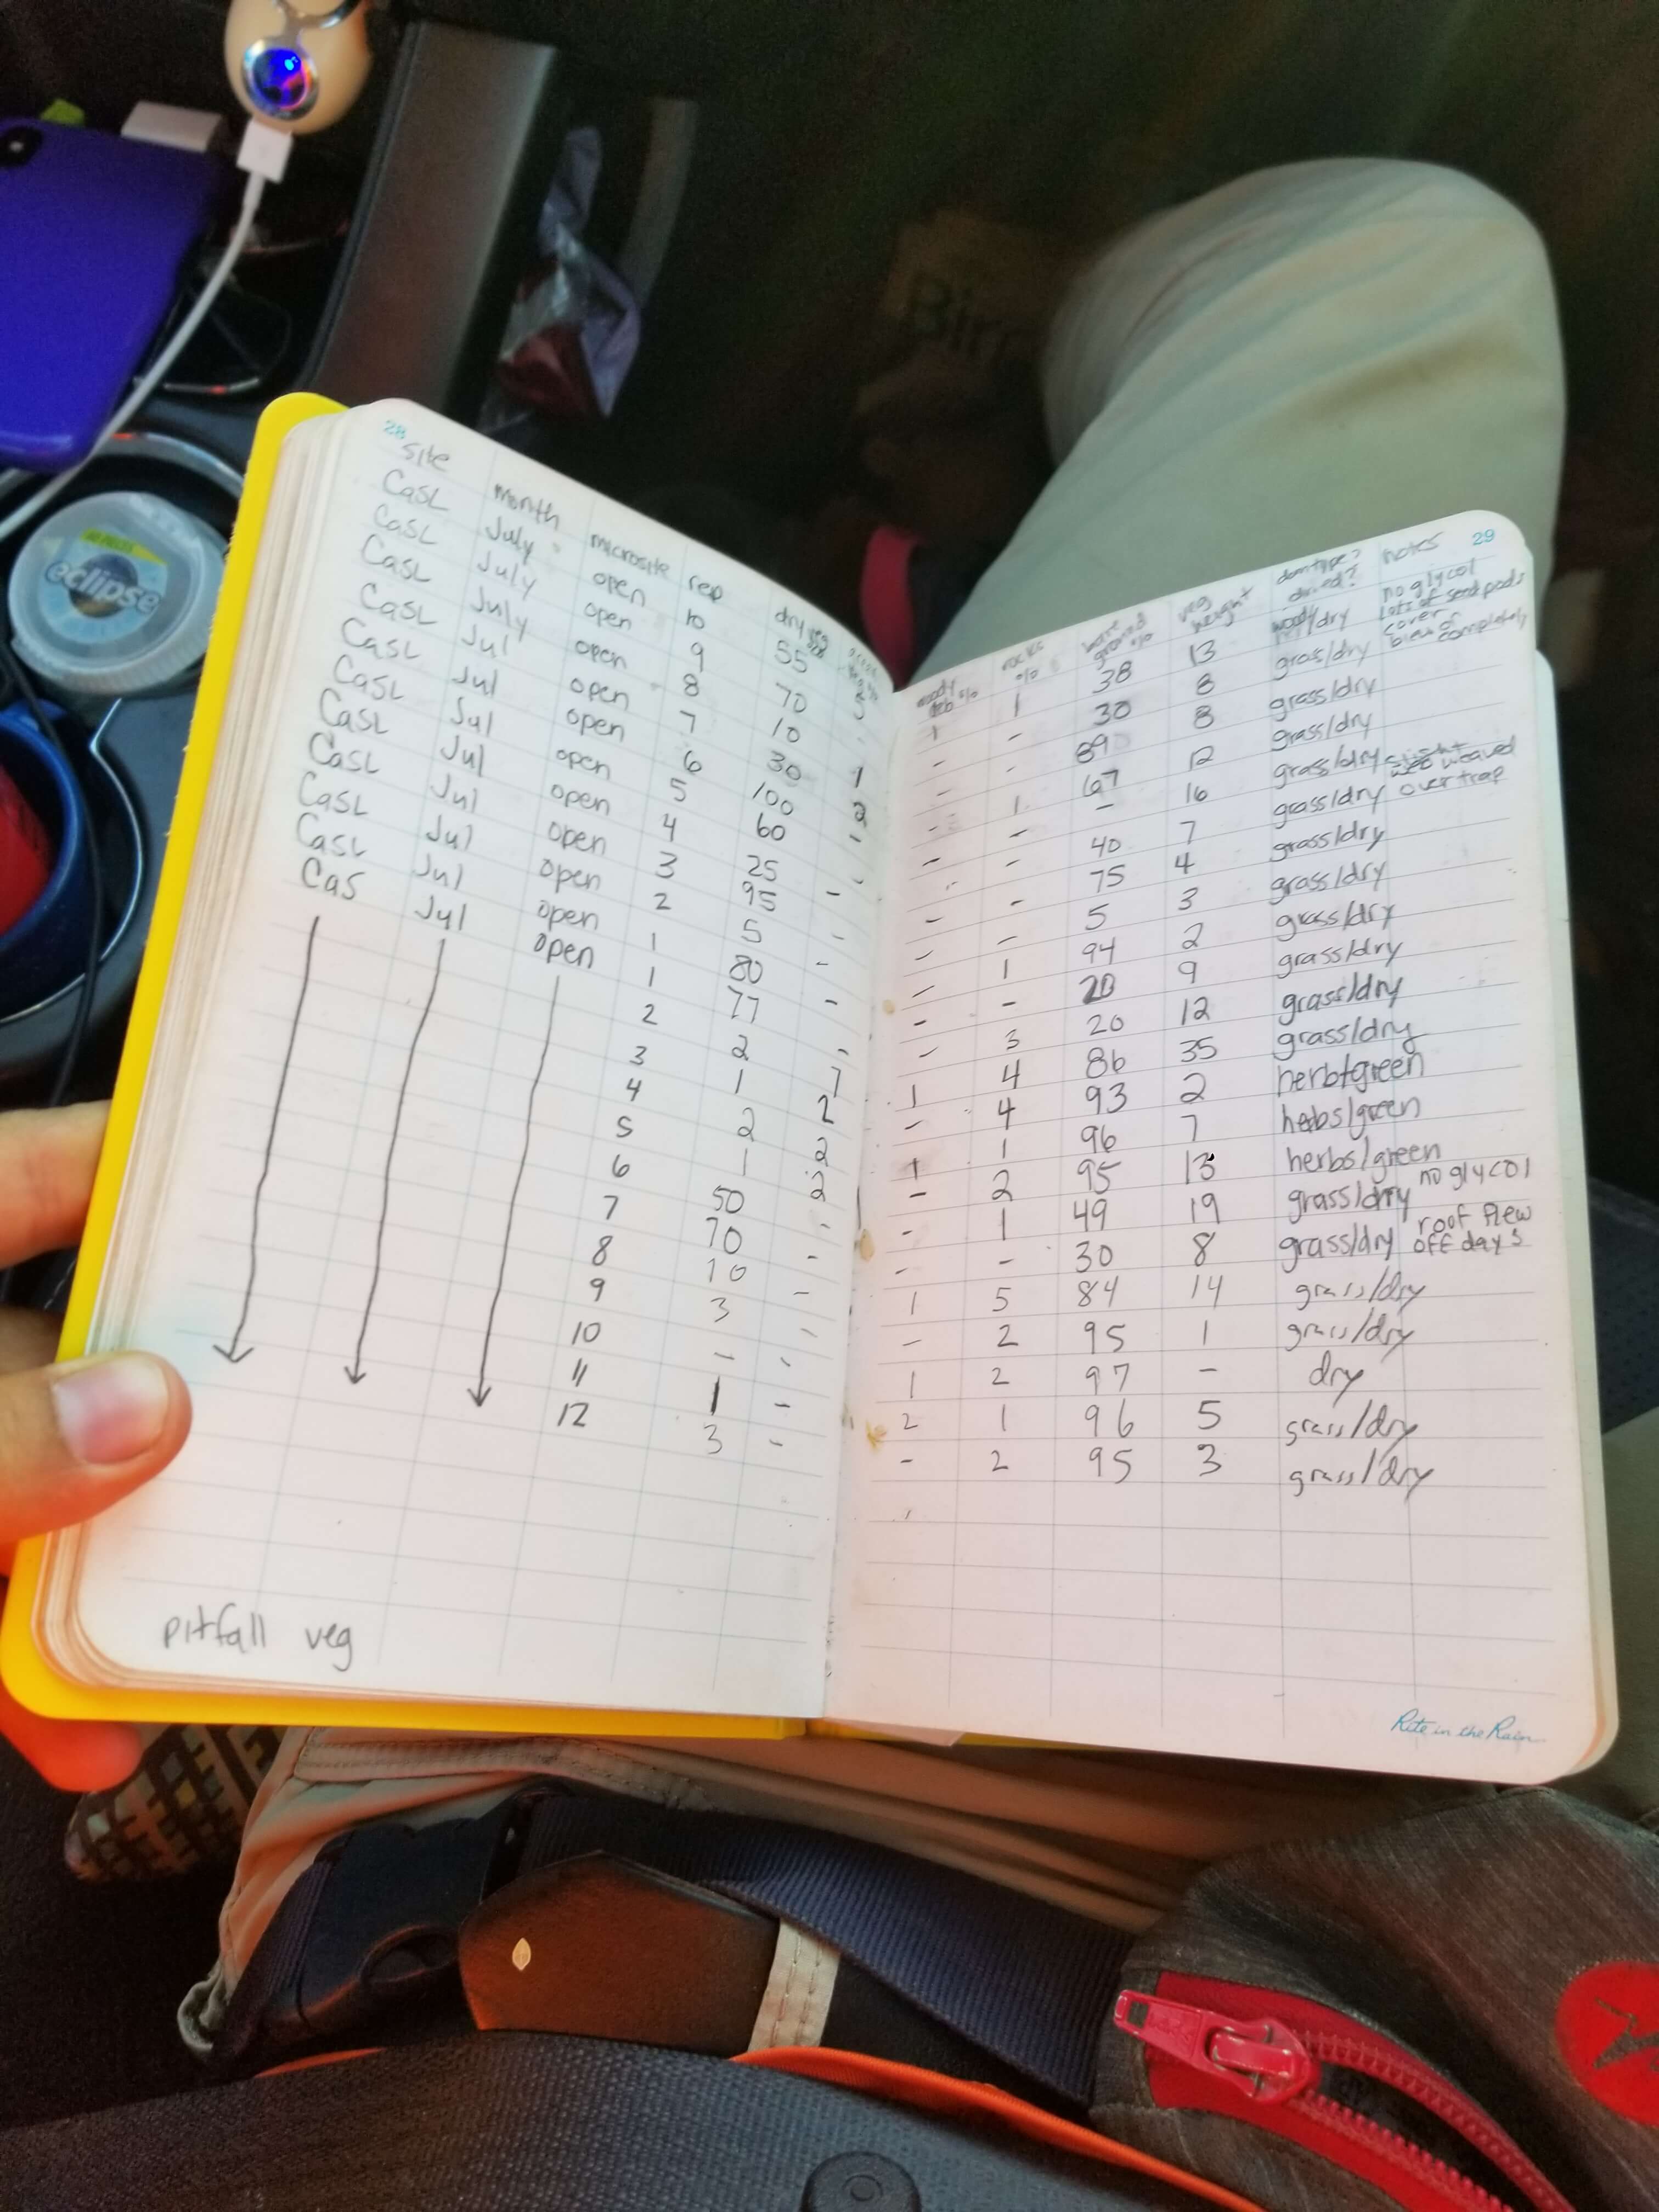 28
site month microsite rep dry veg
CasL July open 10 55 5
CasL July open 9 70 -
CasL July open 8 10 1
CasL Jul open 7 30 2
CasL Jul open 6 100 -
CasL Jul open 5 60 -
CasL Jul open 4 25 -
CasL Jul open 3 95 -
CasL Jul open 2 5 -
CasL Jul open 1 80 -
Cas Jul open 1 77 -
2 2 7
3 1 2
4 2 2
5 1 2
6 50 -
7 70 -
8 10 -
9 3 -
10 - -
11 1 -
12 3 -
pitfall veg
29
rocks % bare ground % veg height domtype? dried? notes
1 1 38 13 woody/dry no glycol lots of seed pods
- - 30 8 grass/dry cover blew off completely
- - 89 8 grass/dry
- 1 67 12 grass/dry
- - - 16 grass/dry slight web weaved over trap
- - 40 7 grass/dry
- - 75 4 grass/dry
- - 5 3 grass/dry
- 1 94 2 grass/dry
- - 20 9 grass/dry
- 3 20 12 grass/dry
1 4 86 35 grass/dry
- 4 93 2 herb+green
1 1 96 7 herbs/green
- 2 95 13 herbs/green
- 1 49 19 grass/dry no glycol
- - 30 8 grass/dry roof flew off day 3
1 5 84 14 grass/dry
- 2 95 1 grass/dry
1 2 97 - dry
2 1 96 5 grass/dry
- 2 95 3 grass/dry
Rite in the Rain
eclipse